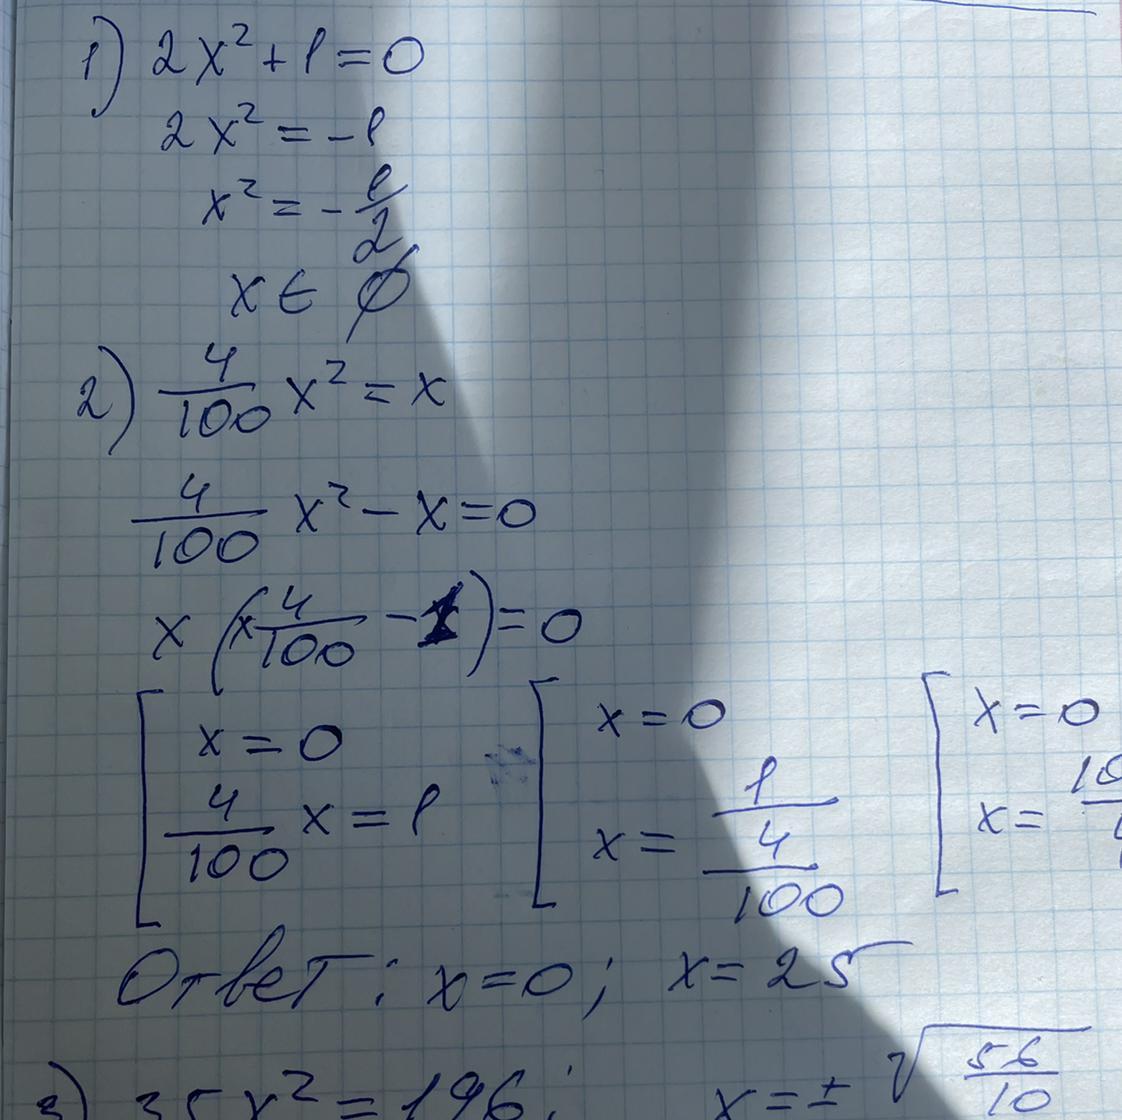 1) 2x² + 1 = 0
2x² = -1
x² = -1/2
x ∈ ∅
2) 4/100 x² = x
4/100 x² - x = 0
x (x 4/100 - 1) = 0
[ x = 0 [ x = 0 [ x = 0
4/100 x = 1 x = 1/(4/100) x = 10
Ответ: x = 0; x = 25
3) 35x² = 196; x = ± √(56/10)